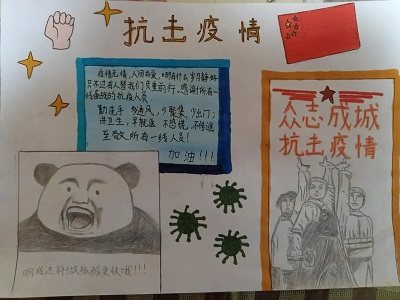 抗击疫情
疫情无情，人间有爱，哪有什么岁月静好
只不过有人替我们负重前行。感谢所有一
线奋战的抗疫人员。
勤洗手 多通风，少聚集 少出门；
讲卫生，早就医 不恐慌，不传谣
至敬所有一线人员！
加油！！！
众志成城
抗击疫情
啊成这样做核酸更快哦！！！